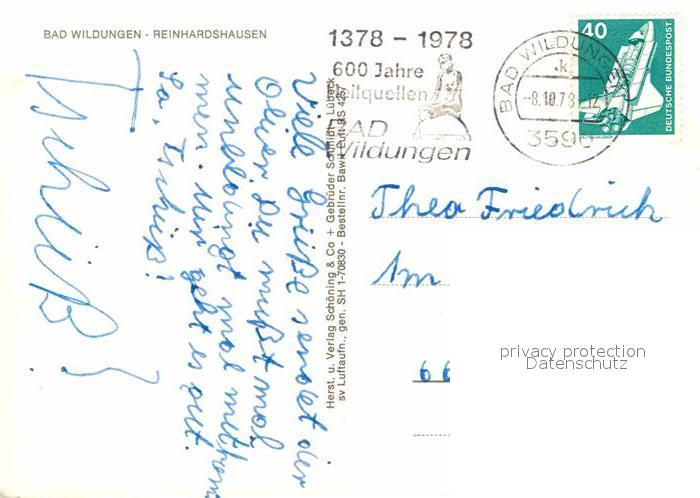 BAD WILDUNGEN - REINHARDSHAUSEN
1378 - 1978
600 Jahre
Heilquellen
BAD
Wildungen
BAD WILDUNGEN
-8.10.78-12
3590
40
DEUTSCHE BUNDESPOST
Viele Grüße sendet der
Oliver. Du mußt mal
unbedingt mal mitkom
men. Mir geht es gut.
Sa, Tschüß!
Tschüß!
Herst. u. Verlag Schöning & Co + Gebrüder Schmidt, Lübeck
sv Luftaufn., gen. SH 1-70830 - Bestellnr. Bawi Luft RS 4267
Theo Friedrich
Am
66
privacy protection
Datenschutz